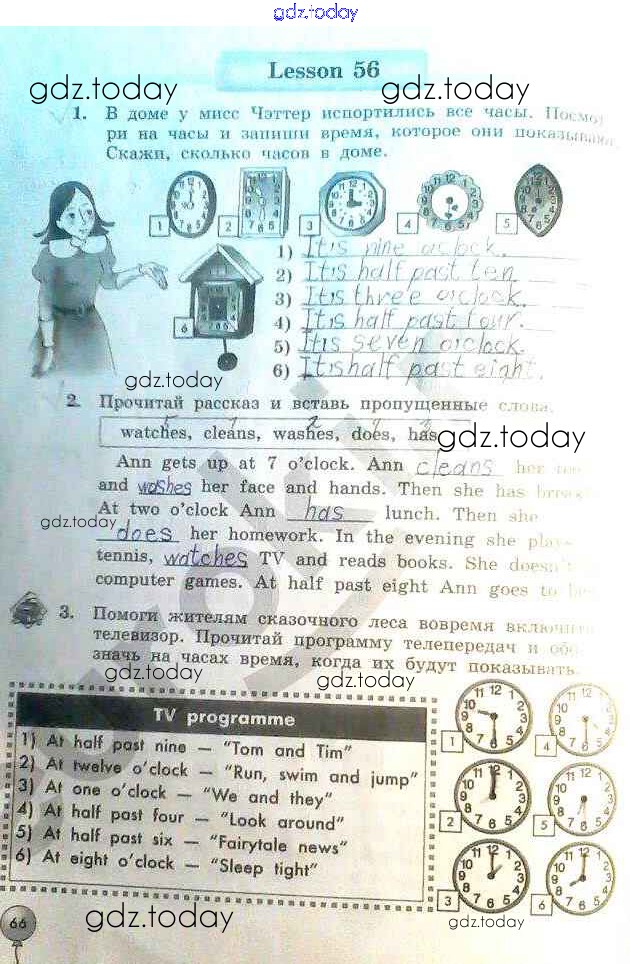 gdz.today
Lesson 56
gdz.today gdz.today
1. В доме у мисс Чэттер испортились все часы. Посмот
ри на часы и запиши время, которое они показывают.
Скажи, сколько часов в доме.
1 2 3 4 5
1) It is nine o'clock.
2) It is half past ten
3) It is three o'clock.
4) It is half past four.
5) It is seven o'clock.
6) It is half past eight.
6
gdz.today
2. Прочитай рассказ и вставь пропущенные слова.
watches, cleans, washes, does, has
gdz.today
Ann gets up at 7 o'clock. Ann cleans her
and washes her face and hands. Then she has
At two o'clock Ann has lunch. Then she
gdz.today
does her homework. In the evening she plays
tennis, watches TV and reads books. She doesn't
computer games. At half past eight Ann goes to
3. Помоги жителям сказочного леса вовремя включить
телевизор. Прочитай программу телепередач и обо
значь на часах время, когда их будут показывать.
gdz.today gdz.today
TV programme
1) At half past nine — "Tom and Tim"
2) At twelve o'clock — "Run, swim and jump"
3) At one o'clock — "We and they"
4) At half past four — "Look around"
5) At half past six — "Fairytale news"
6) At eight o'clock — "Sleep tight"
1 4
2 5
3 6
66
gdz.today gdz.today